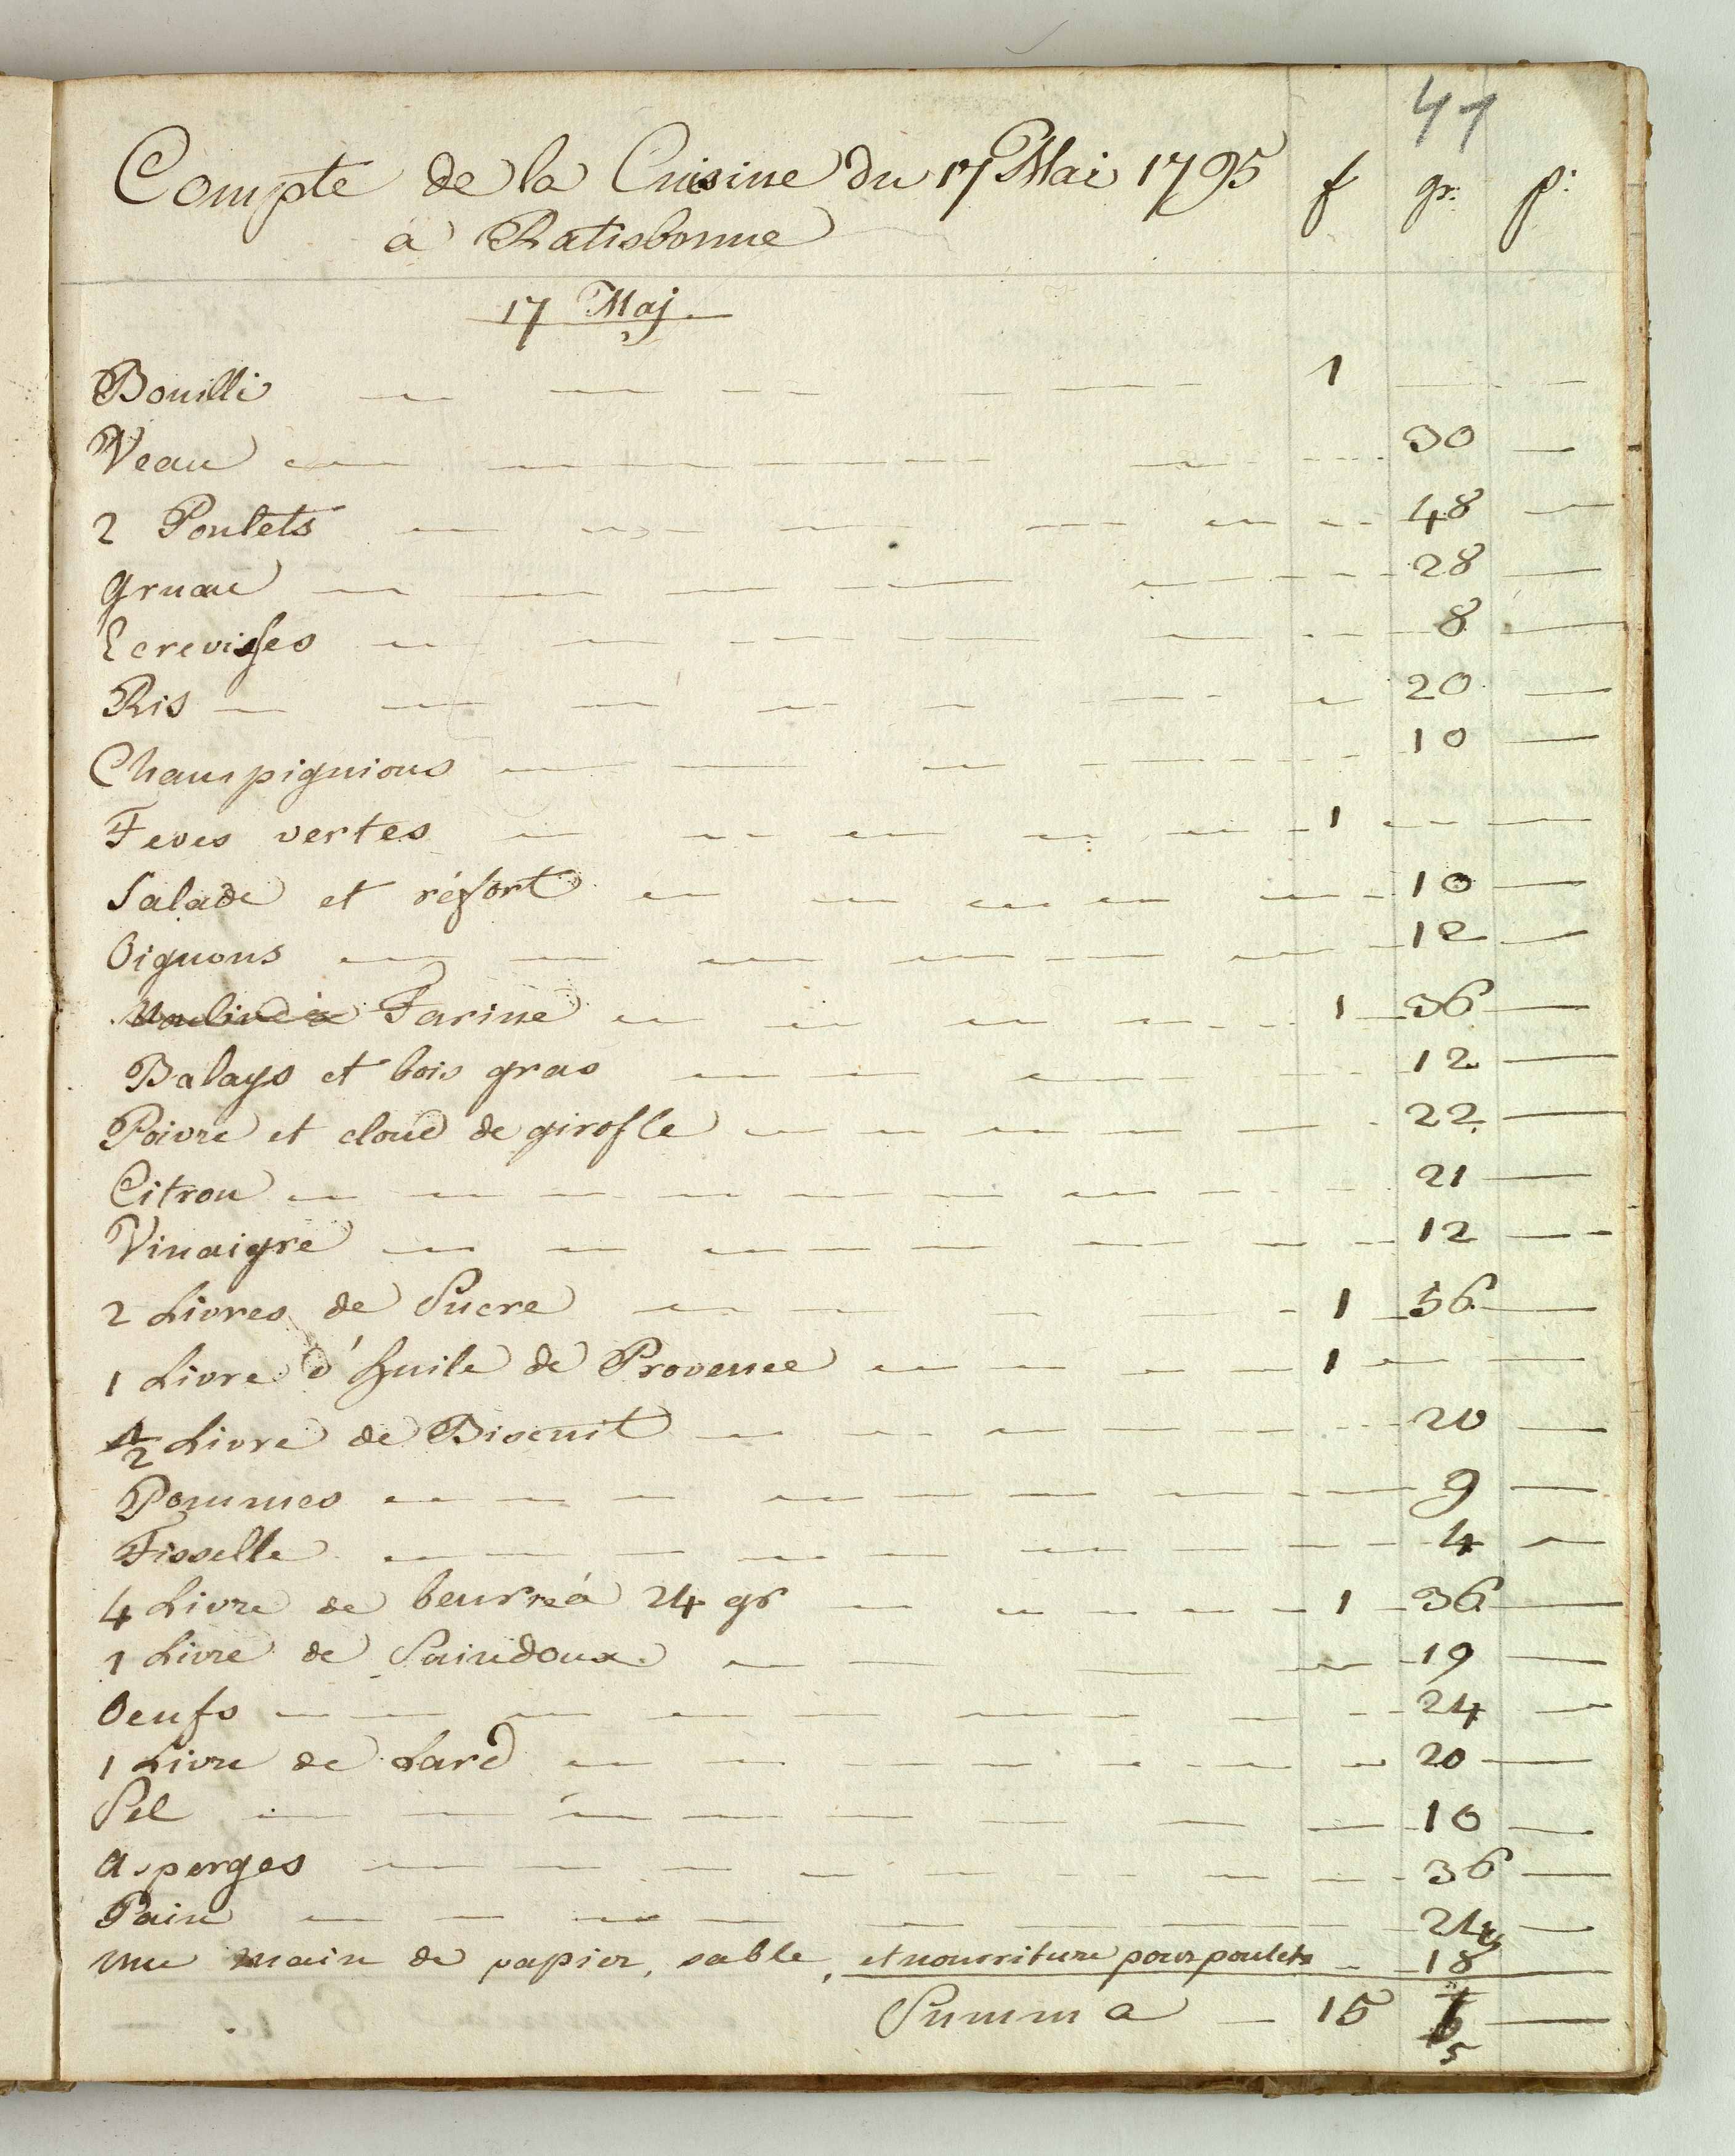 47
Compte de la Cuisine du 17 Mai 1795 f gr: p:
à Ratisbonne
17 Maj.
Bouilli 1
Veau 30
2 Poulets 48
gruau 28
Ecrevisses 8
Ris 20
Champignions 10
Feves vertes 1
Salade et réfort 10
Oignons 12
Farine 1 36
Balays et bois gras 12
Poivre et cloud de girofle 22
Citron 21
Vinaigre 12
2 Livres de Sucre 1 56
1 Livre d'huile de Provence 1
1/2 Livre de Biscuit 20
Pommes 9
Fisselle 4
4 Livre de beurre à 24 gr 1 36
1 Livre de Saindoux 19
Oeufs 24
1 Livre de Lard 20
Sel 10
Asperges 36
Pain 24
une main de papier, sable, et nourriture pour poulets 18
Summa 15